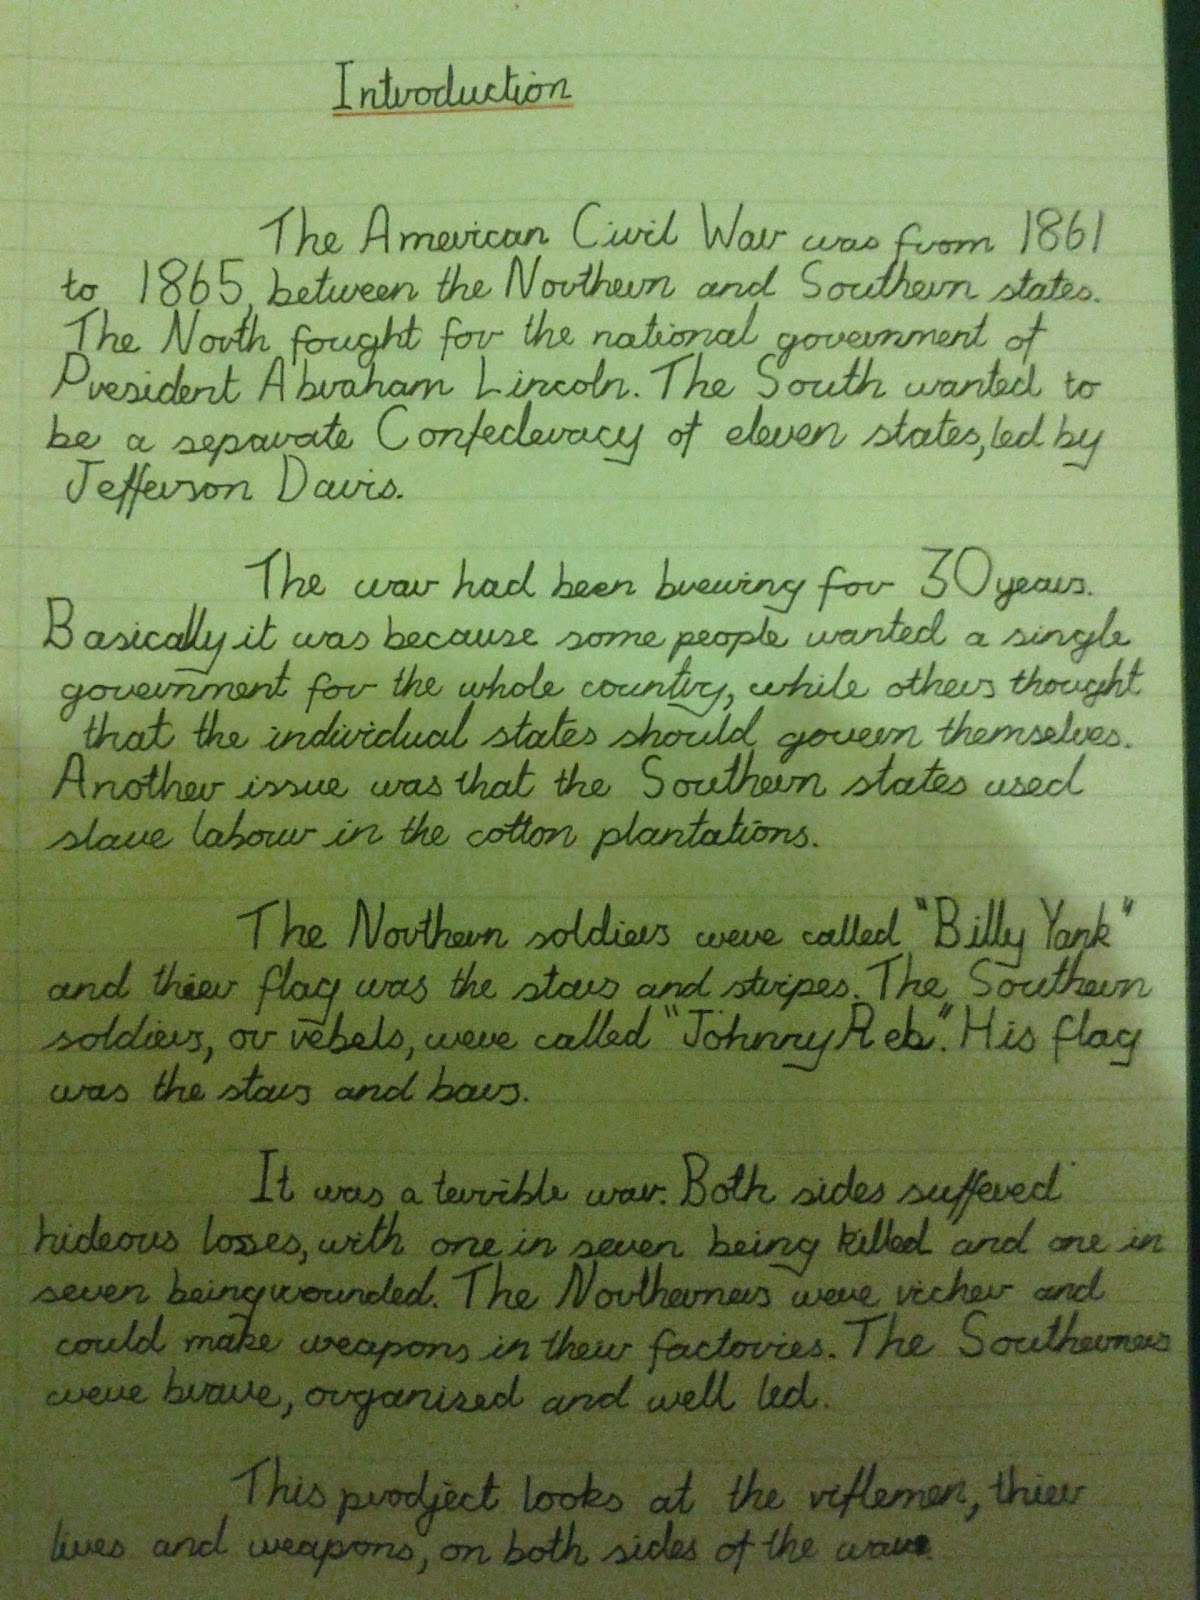 Introduction
The American Civil War was from 1861
to 1865, between the Northern and Southern states.
The North fought for the national government of
President Abraham Lincoln. The South wanted to
be a separate Confederacy of eleven states, led by
Jefferson Davis.
The war had been brewing for 30 years.
Basically it was because some people wanted a single
government for the whole country, while others thought
that the individual states should govern themselves.
Another issue was that the Southern states used
slave labour in the cotton plantations.
The Northern soldiers were called "Billy Yank"
and thier flag was the stars and stripes. The Southern
soldiers, or rebels, were called "Johnny Reb". His flag
was the stars and bars.
It was a terrible war. Both sides suffered
hideous losses, with one in seven being killed and one in
seven being wounded. The Northerners were richer and
could make weapons in their factories. The Southerners
were brave, organised and well led.
This prodject looks at the riflemen, thier
lives and weapons, on both sides of the war.